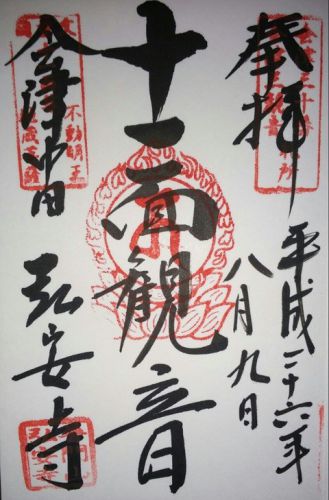 奉拝
平成二十六年
八月九日
十一面観音
会津中田
弘安寺
不動明王